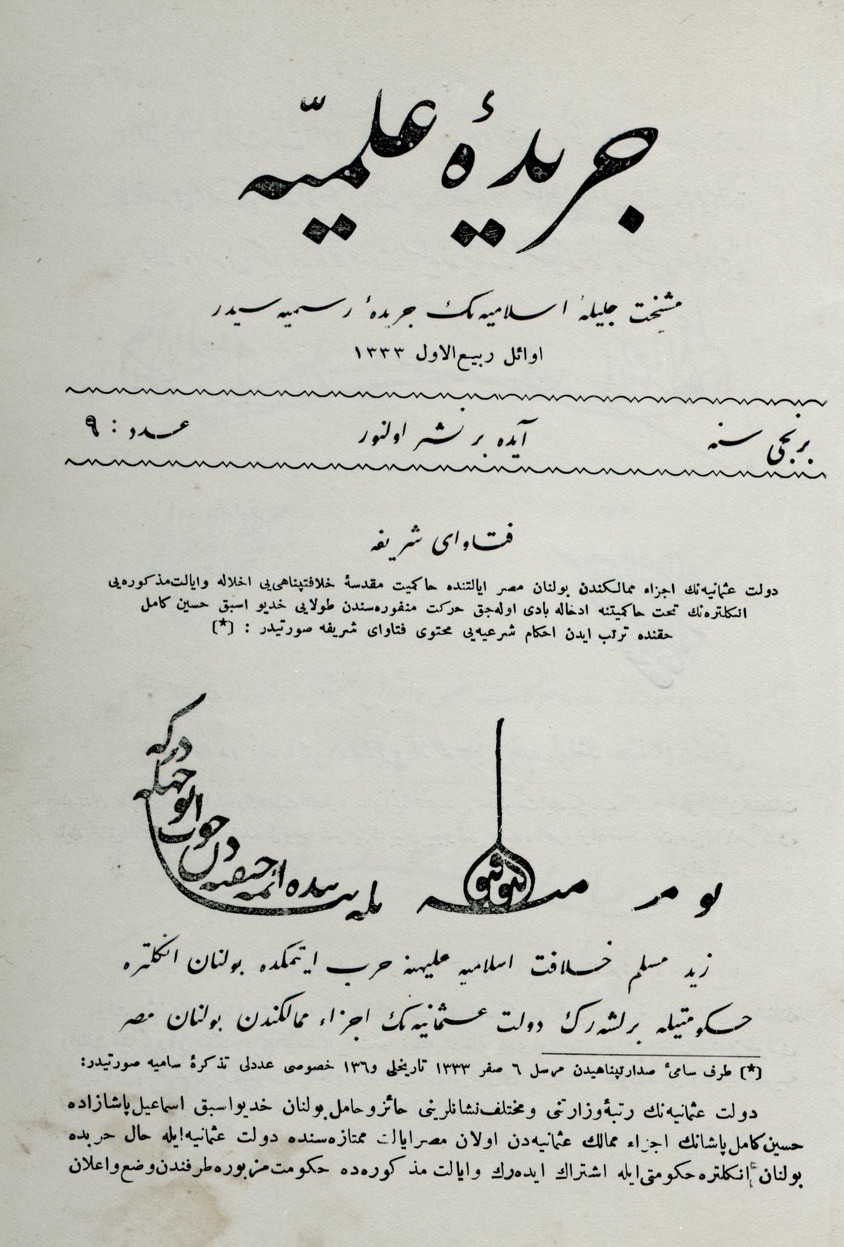 جریدهٔ علمیّه
مشیخت جلیلهٔ اسلامیه‌نك جریدهٔ رسمیه‌سیدر
اوائل ربیع‌الاول ١٣٣٣
برنجی سنه
آیده بر نشر اولنور
عدد : ٩
فتاوای شریفه
دولت عثمانیه‌نك اجزاء ممالكندن بولنان مصر ایالتنده حاكمیت مقدسهٔ خلافتپناهی‌یی اخلاله وایالت‌مذكوره‌یی
انكلتره‌نك تحت حاكمیتنه ادخاله بادی اوله‌جق حركت منفوره‌سندن طولایی خدیو اسبق حسین كامل
حقنده ترتب ایدن احكام شرعیه‌یی محتوی فتاوای شریفه صورتیدر : [*]
منه التوفیق
بو مسئله بیاننده ائمهٔ حنفیه‌دن جواب نه وجهله‌دركه
زید مسلم خلافت اسلامیه علیهنه حرب ایتمكده بولنان انكلتره
حكومتیله برلشه‌رك دولت عثمانیه‌نك اجزاء ممالكندن بولنان مصر
[*] طرف سامیٔ صدارتپناهیدن مرسل ٦ صفر ١٣٣٣ تاریخلی و١٣٦ خصوصی عددلی تذكرهٔ سامیه صورتیدر:
دولت عثمانیه‌نك رتبهٔ وزارتنی ومختلف‌نشانلرینی حائز وحامل‌بولنان خدیواسبق اسماعیل‌پاشازاده
حسین‌كامل‌پاشانك اجزاء ممالك عثمانیه‌دن اولان مصرایالت ممتازه‌سنده دولت عثمانیه‌ایله حال حربده
بولنان انكلتره حكومتی‌ایله اشتراك ایده‌رك وایالت مذكوره‌ده حكومت‌مزبوره‌طرفندن‌وضع‌واعلان